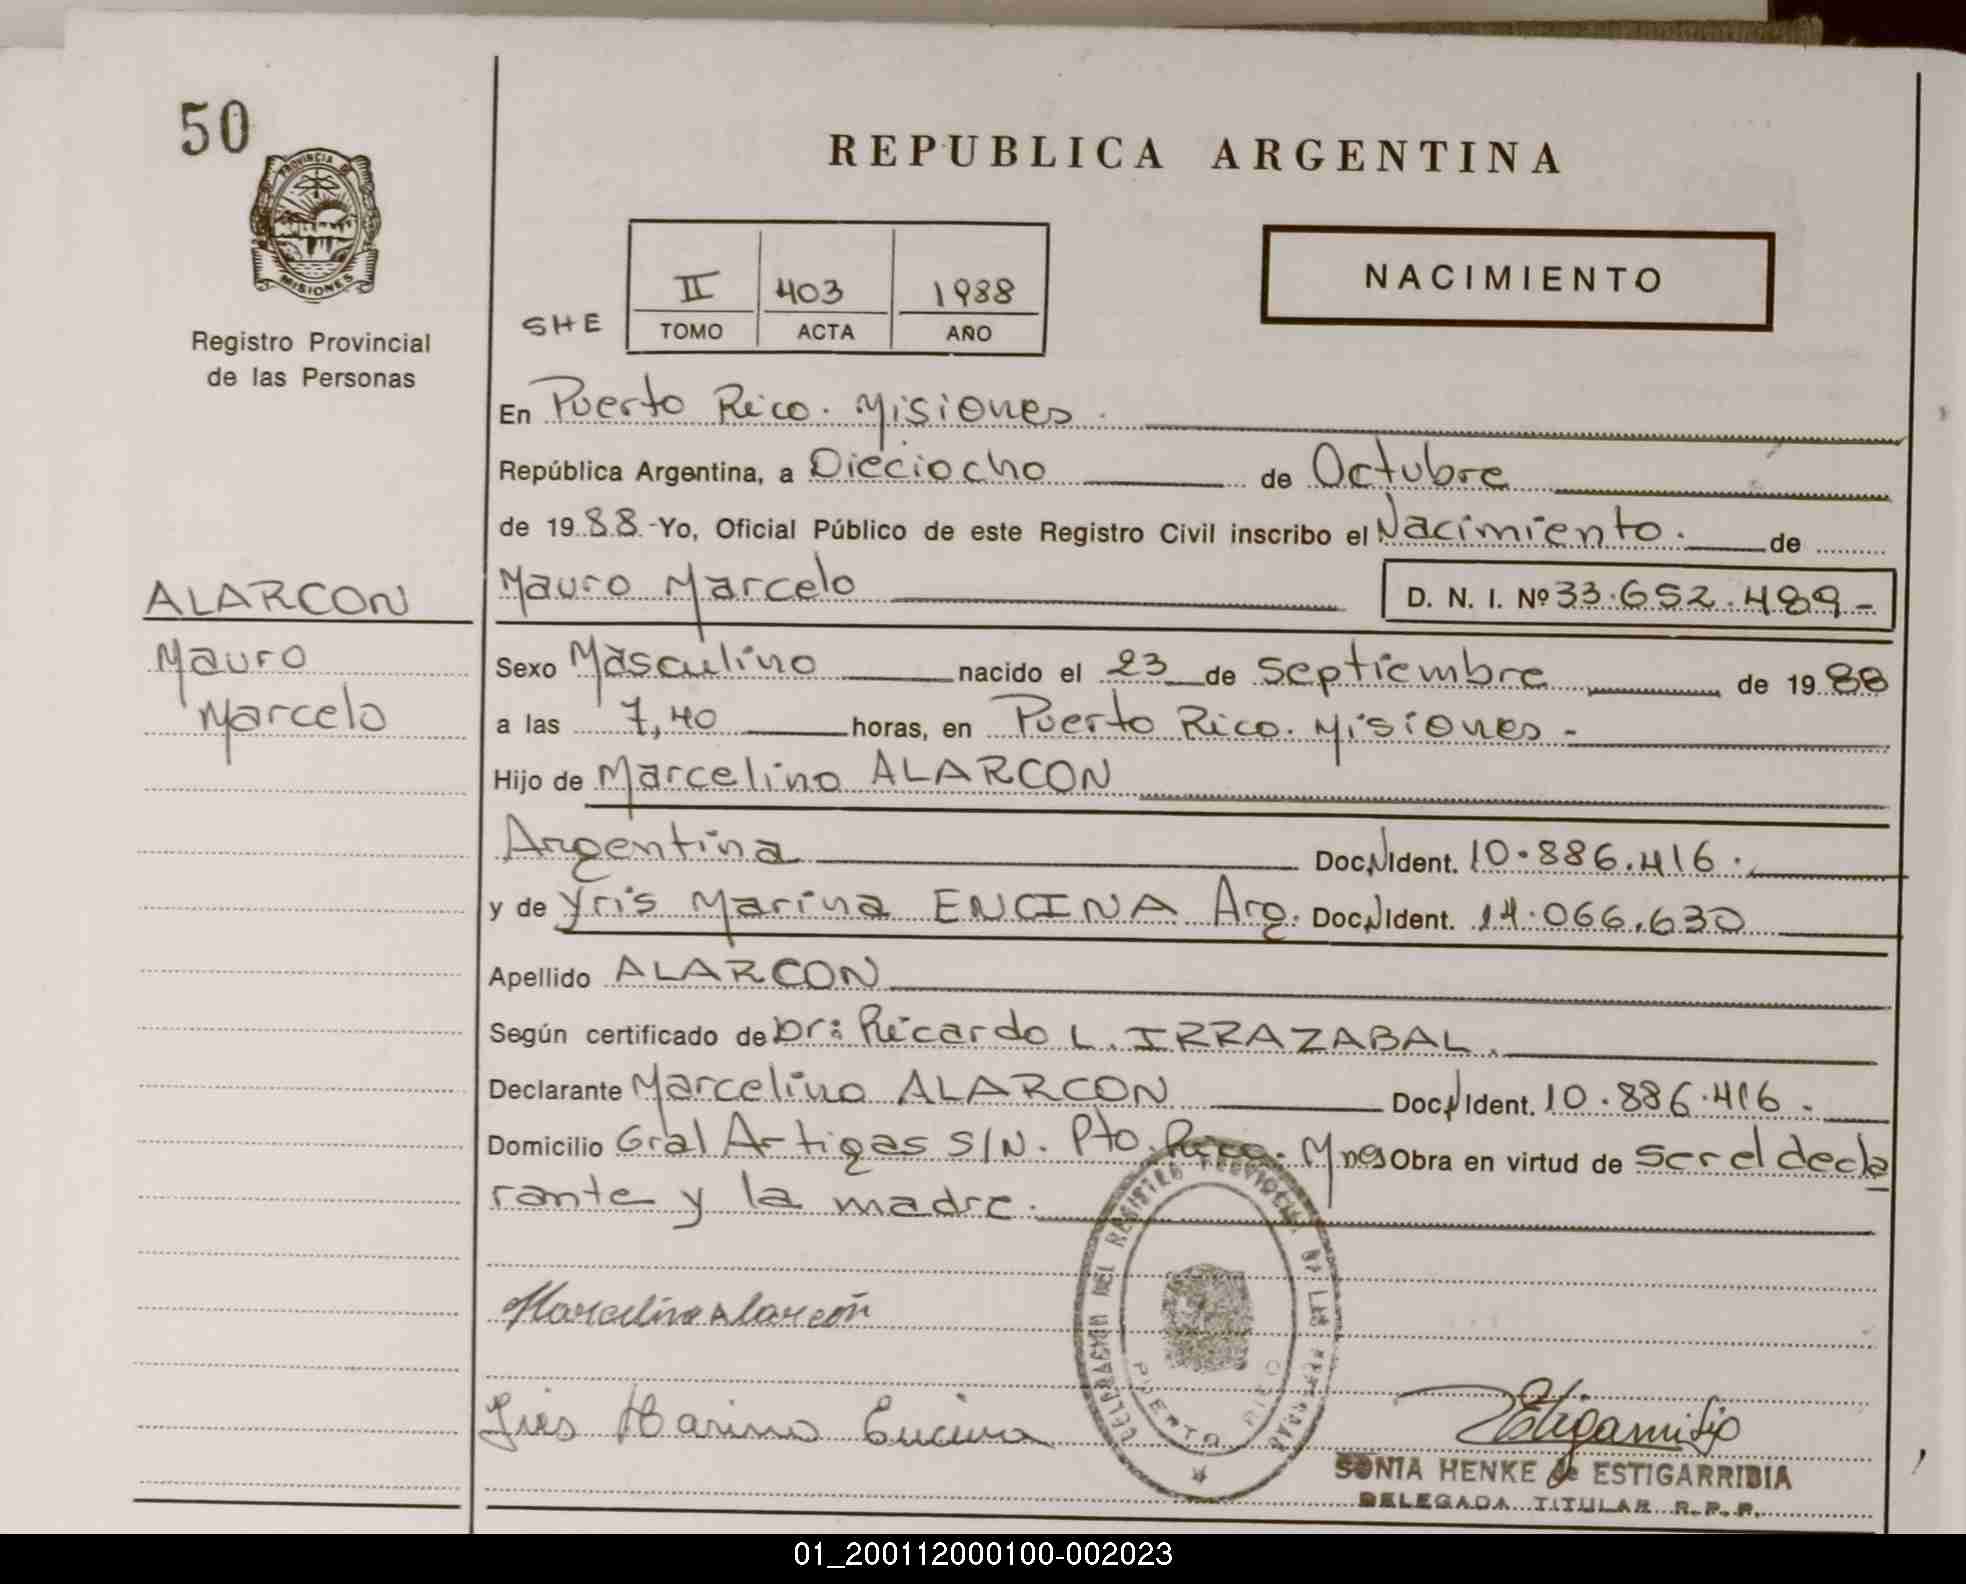 50
PROVINCIA DE
MISIONES
Registro Provincial
de las Personas
REPUBLICA ARGENTINA
NACIMIENTO
SHE
II 403 1988
TOMO ACTA AÑO
En Puerto Rico. Misiones.
República Argentina, a Dieciocho de Octubre
de 1988.-Yo, Oficial Público de este Registro Civil inscribo el Nacimiento. de
ALARCON
Mauro
Marcelo
Mauro Marcelo D. N. I. Nº 33.652.489-
Sexo Masculino nacido el 23 de Septiembre de 1988
a las 7,40 horas, en Puerto Rico. Misiones-
Hijo de Marcelino ALARCON
Argentina Doc. N Ident. 10.886.416.
y de Yris Marina ENCINA Arg. Doc. N Ident. 14.066.630
Apellido ALARCON
Según certificado de Dr: Ricardo L. IRRAZABAL.
Declarante Marcelino ALARCON Doc. N Ident. 10.886.416.
Domicilio Gral Artigas S/N. Pto. Rico. Mnes Obra en virtud de Ser el decla
rante y la madre.
DELEGACION DEL REGISTRO PROVINCIAL DE LAS PERSONAS
PUERTO RICO
Marcelino Alarcón
Iris Marina Encina
SONIA HENKE de ESTIGARRIBIA
DELEGADA TITULAR R.P.P.
01_200112000100-002023